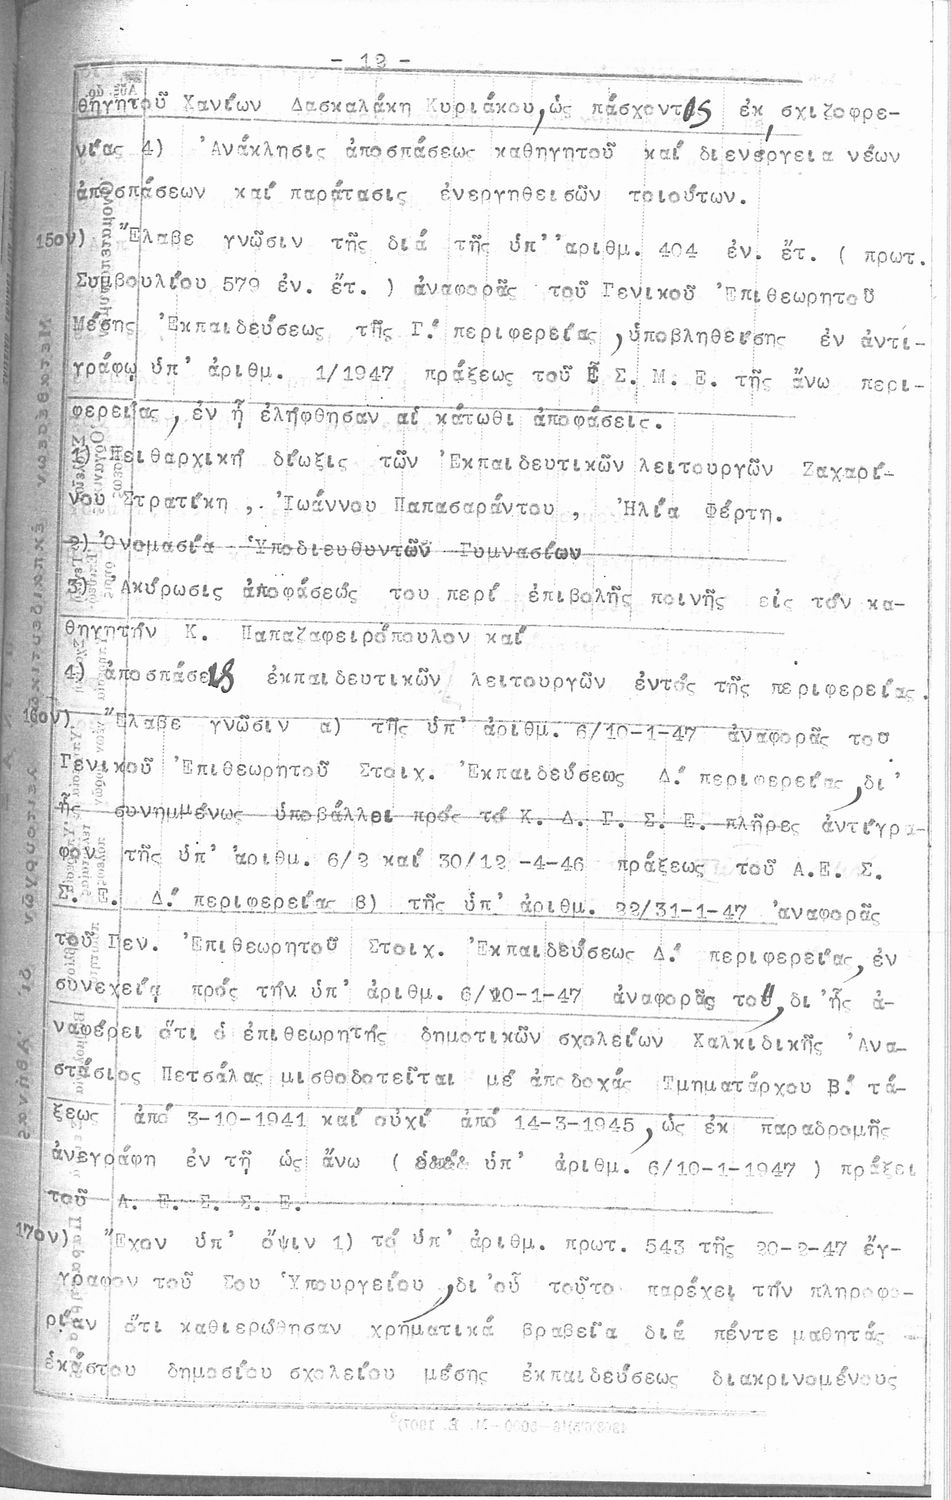 - 12 -
θηγητοῦ Χανίων Δασκαλάκη Κυριάκου, ὡς πάσχοντος ἐκ σχιζοφρε-
νίας 4) Ἀνάκλησις ἀποσπάσεως καθηγητοῦ καί διενέργεια νέων
ἀποσπάσεων καί παράτασις ἐνεργηθεισῶν τοιούτων.
15ον) Ἔλαβε γνῶσιν τῆς διά τῆς ὑπ' ἀριθμ. 404 ἐν. ἔτ. ( πρωτ.
Συμβουλίου 579 ἐν. ἔτ. ) ἀναφορᾶς τοῦ Γενικοῦ Ἐπιθεωρητοῦ
Μέσης Ἐκπαιδεύσεως τῆς Γ΄ περιφερείας, ὑποβληθείσης ἐν ἀντι-
γράφῳ ὑπ' ἀριθμ. 1/1947 πράξεως τοῦ Ε Σ. Μ. Ε. τῆς ἄνω περι-
φερείας, ἐν ᾗ ἐλήφθησαν αἱ κάτωθι ἀποφάσεις.
1) Πειθαρχική δίωξις τῶν Ἐκπαιδευτικῶν λειτουργῶν Ζαχαρί-
νου Στρατίκη, Ἰωάννου Παπασαράντου, Ἠλία Φέρτη.
2) Ὀνομασία Ὑποδιευθυντῶν Γυμνασίων
3) Ἀκύρωσις ἀποφάσεώς του περί ἐπιβολῆς ποινῆς εἰς τόν κα-
θηγητήν Κ. Παπαζαφειρόπουλον καί
4) ἀποσπάσεις ἐκπαιδευτικῶν λειτουργῶν ἐντός τῆς περιφερείας.
16ον) Ἔλαβε γνῶσιν α) τῆς ὑπ' ἀριθμ. 6/10-1-47 ἀναφορᾶς του
Γενικοῦ Ἐπιθεωρητοῦ Στοιχ. Ἐκπαιδεύσεως Δ΄ περιφερείας, δι'
ἧς συνημμένως ὑποβάλλει πρός τό Κ. Δ. Γ. Σ. Ε. πλῆρες ἀντίγρα-
φον τῆς ὑπ' ἀριθμ. 6/2 καί 30/12 -4-46 πράξεως τοῦ Α.Ε. Σ.
Σ. Ε. Δ΄ περιφερείας β) τῆς ὑπ' ἀριθμ. 22/31-1-47 ἀναφορᾶς
τοῦ Γεν. Ἐπιθεωρητοῦ Στοιχ. Ἐκπαιδεύσεως Δ΄ περιφερείας, ἐν
συνεχείᾳ πρός τήν ὑπ' ἀριθμ. 6/10-1-47 ἀναφοράς του, δι' ἧς ἀ-
ναφέρει ὅτι ὁ ἐπιθεωρητής δημοτικῶν σχολείων Χαλκιδικῆς Ἀνα-
στάσιος Πετσάλας μισθοδοτεῖται μέ ἀποδοχάς Τμηματάρχου Β΄ τά-
ξεως ἀπό 3-10-1941 καί οὐχί ἀπό 14-3-1945, ὡς ἐκ παραδρομῆς
ἀνεγράφη ἐν τῇ ὡς ἄνω ( ὑπ' ἀριθμ. 6/10-1-1947 ) πράξει
τοῦ Α. Ε. Σ. Σ. Ε.
17ον) Ἔχον ὑπ' ὄψιν 1) τό ὑπ' ἀριθμ. πρωτ. 543 τῆς 20-2-47 ἔγ-
γραφον τοῦ Σου Ὑπουργείου, δι' οὗ τοῦτο παρέχει τήν πληροφο-
ρίαν ὅτι καθιερώθησαν χρηματικά βραβεῖα διά πέντε μαθητάς
ἑκάστου δημοσίου σχολείου μέσης ἐκπαιδεύσεως διακρινομένους